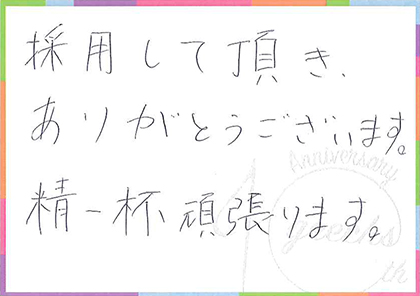 採用して頂き、
ありがとうございます。
精一杯、頑張ります。
Anniversary
10
th